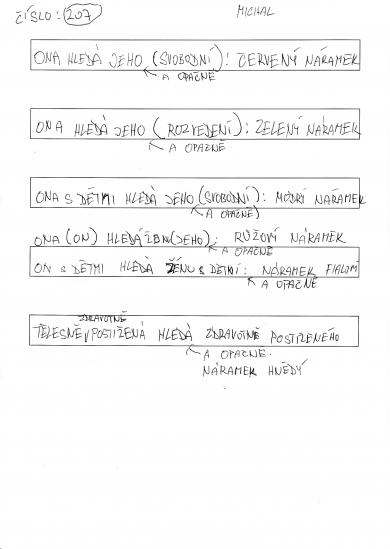 ČÍSLO: 207
MICHAL
ONA HLEDÁ JEHO (SVOBODNÍ): ČERVENÝ NÁRAMEK
A OPAČNĚ
ONA HLEDÁ JEHO (ROZVEDENÍ): ZELENÝ NÁRAMEK
A OPAČNĚ
ONA S DĚTMI HLEDÁ JEHO (SVOBODNÍ): MODRÍ NÁRAMEK
A OPAČNĚ)
ONA (ON) HLEDÁ ŽENU (JEHO): RŮŽOVÝ NÁRAMEK
A OPAČNĚ
ON S DĚTMI HLEDÁ ŽENU S DĚTMI: NÁRAMEK FIALOVÍ
A OPAČNĚ
ZDRAVOTNĚ
TĚLESNĚ POSTIŽENÁ HLEDÁ ZDRAVOTNĚ POSTIŽENÉHO
A OPAČNĚ.
NÁRAMEK HNĚDÝ